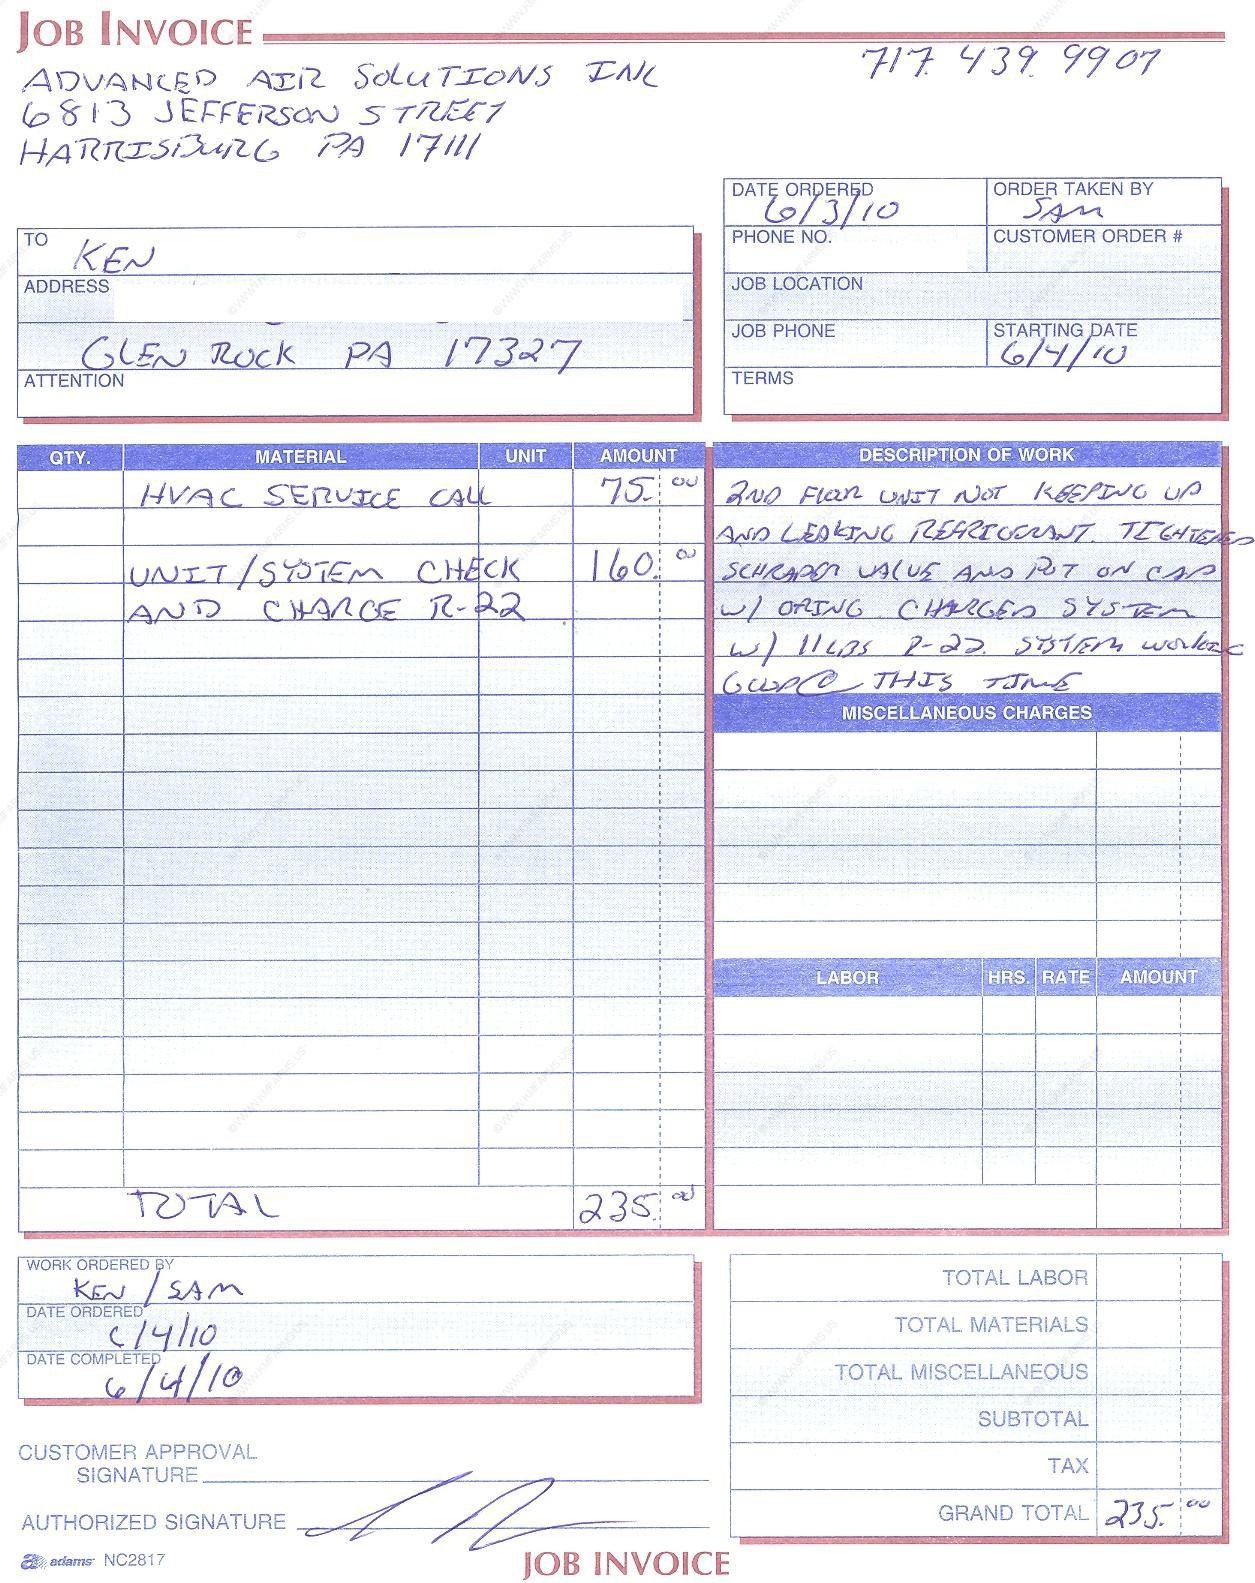 JOB INVOICE
717. 439. 9907
ADVANCED AIR SOLUTIONS INC
6813 JEFFERSON STREET
HARRISBURG PA 17111
DATE ORDERED
6/3/10
ORDER TAKEN BY
SAM
PHONE NO.
CUSTOMER ORDER #
JOB LOCATION
JOB PHONE
STARTING DATE
6/4/10
TERMS
TO
KEN
ADDRESS
GLEN ROCK PA 17327
ATTENTION
QTY. MATERIAL UNIT AMOUNT
HVAC SERVICE CALL 75.00
UNIT/SYSTEM CHECK 160.00
AND CHARGE R-22
TOTAL 235.00
DESCRIPTION OF WORK
2ND FLOOR UNIT NOT KEEPING UP
AND LEAKING REFRIGERANT. TIGHTENED
SCHRADER VALVE AND PUT ON CAP
W/ ORING. CHARGED SYSTEM
W/ 11 LBS R-22. SYSTEM WORKING
GOOD @ THIS TIME
MISCELLANEOUS CHARGES
LABOR HRS. RATE AMOUNT
WORK ORDERED BY
KEN / SAM
DATE ORDERED
6/4/10
DATE COMPLETED
6/4/10
TOTAL LABOR
TOTAL MATERIALS
TOTAL MISCELLANEOUS
SUBTOTAL
TAX
GRAND TOTAL 235.00
CUSTOMER APPROVAL
SIGNATURE
AUTHORIZED SIGNATURE
adams NC2817
JOB INVOICE